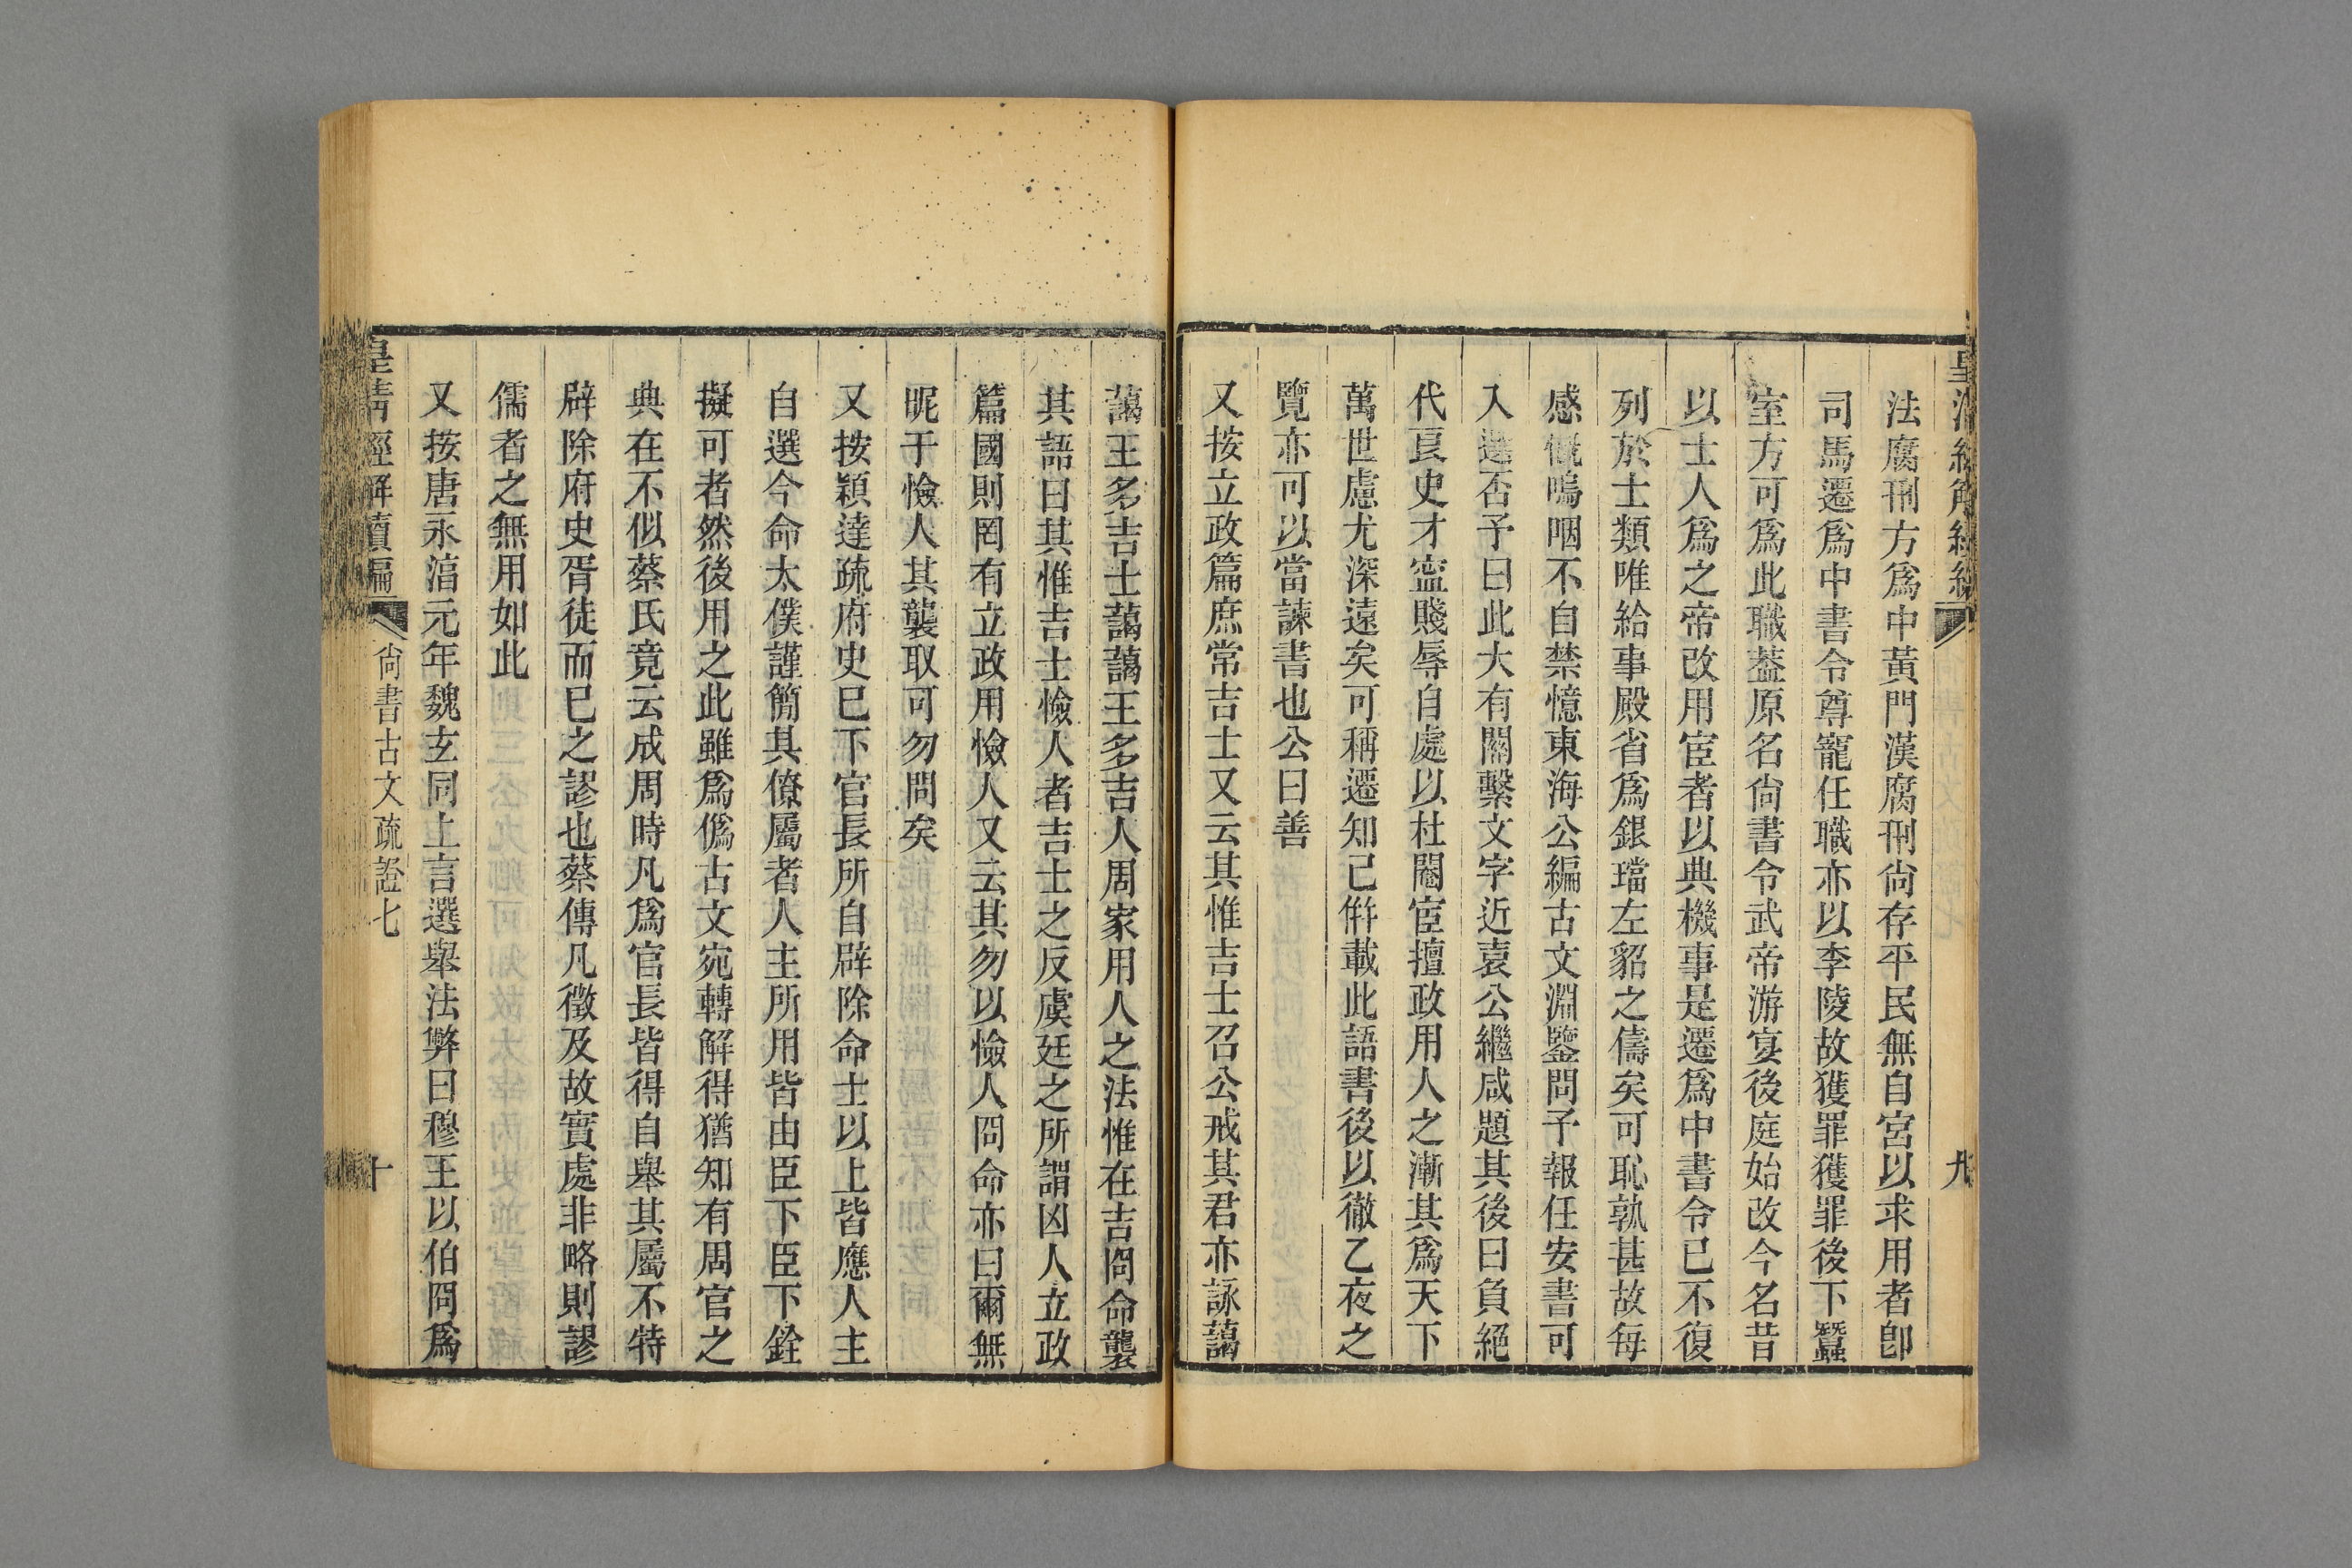 法腐刑方爲中黃門漢腐刑尙存平民無自宮以求用者卽
司馬遷爲中書令尊寵任職亦以李陵故獲罪獲罪後下蠶
室方可爲此職葢原名尙書令武帝游宴後庭始改今名昔
以士人爲之帝改用宦者以典機事是遷爲中書令已不復
列於士類唯給事殿省爲銀璫左貂之儔矣可恥孰甚故每
感慨嗚咽不自禁憶東海公編古文淵鑒問予報任安書可
入選否予曰此大有關繫文字近袁公繼咸題其後曰負絕
代良史才寍賤辱自處以杜閹宦擅政用人之漸其爲天下
萬世慮尤深遠矣可稱遷知己倂載此語書後以徹乙夜之
覽亦可以當諫書也公曰善
又按立政篇庶常吉士又云其惟吉士召公戒其君亦詠藹
九
藹王多吉士藹藹王多吉人周家用人之法惟在吉冏命襲
其語曰其惟吉士憸人者吉士之反虞廷之所謂凶人立政
篇國則罔有立政用憸人又云其勿以憸人冏命亦曰爾無
昵于憸人其襲取可勿問矣
又按穎達疏府史已下官長所自辟除命士以上皆應人主
自選今命太僕謹簡其僚屬者人主所用皆由臣下臣下銓
擬可者然後用之此雖爲僞古文宛轉解得猶知有周官之
典在不似蔡氏竟云成周時凡爲官長皆得自舉其屬不特
辟除府史胥徒而已之謬也蔡傳凡徵及故實處非略則謬
儒者之無用如此
又按唐永淳元年魏玄同上言選舉法弊曰穆王以伯冏爲
皇清經解續編 尙書古文疏證七 十